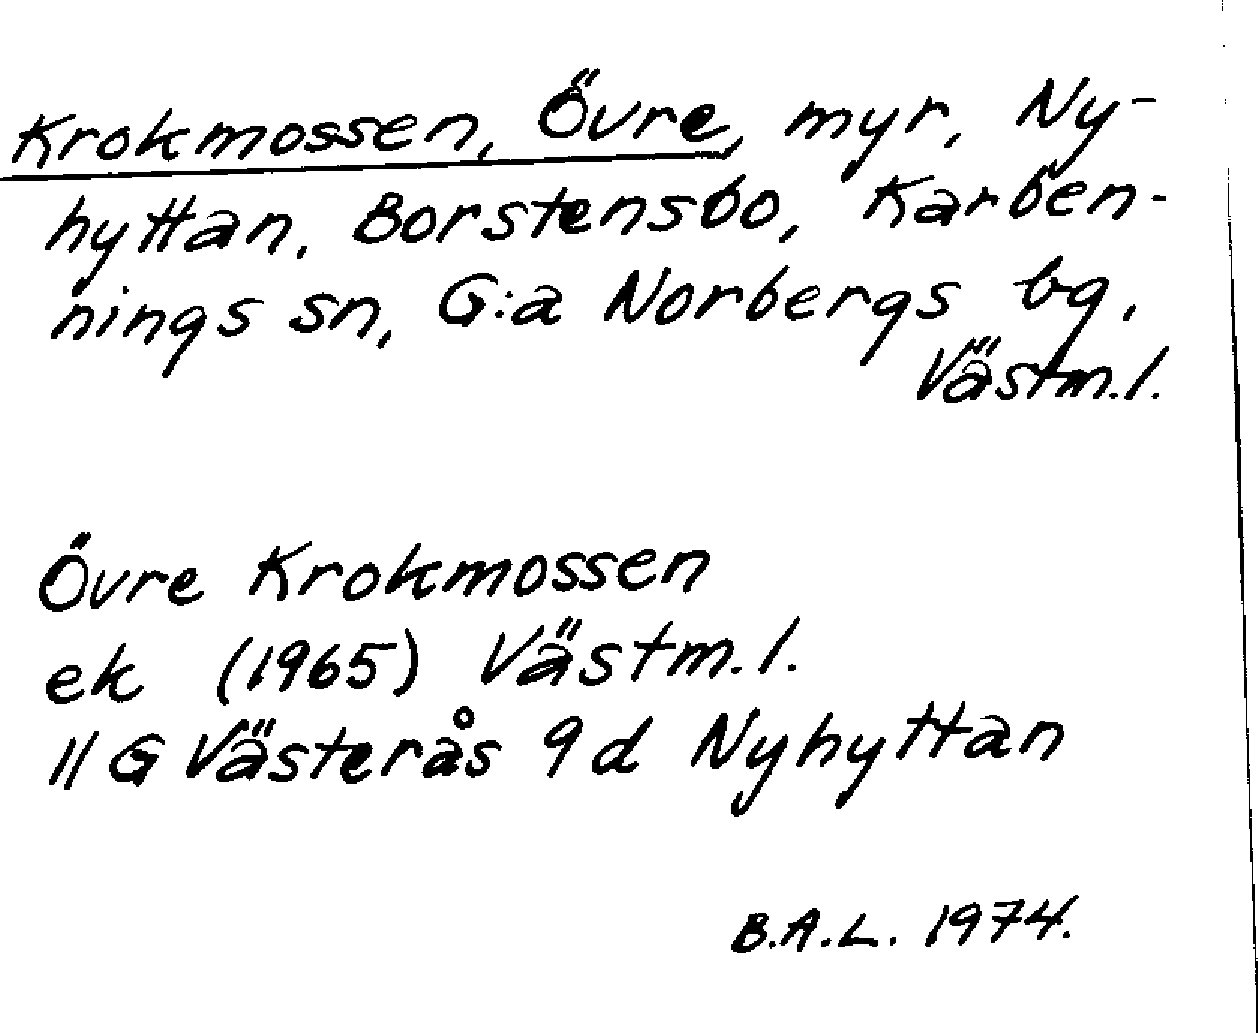 Krokmossen, Övre, myr, Ny-
hyttan, Borstensbo, Karben-
nings sn, G:a Norbergs bg,
Västm.l.
Övre Krokmossen
ek (1965) Västm.l.
11 G Västerås 9d Nyhyttan
B.A.L. 1974.